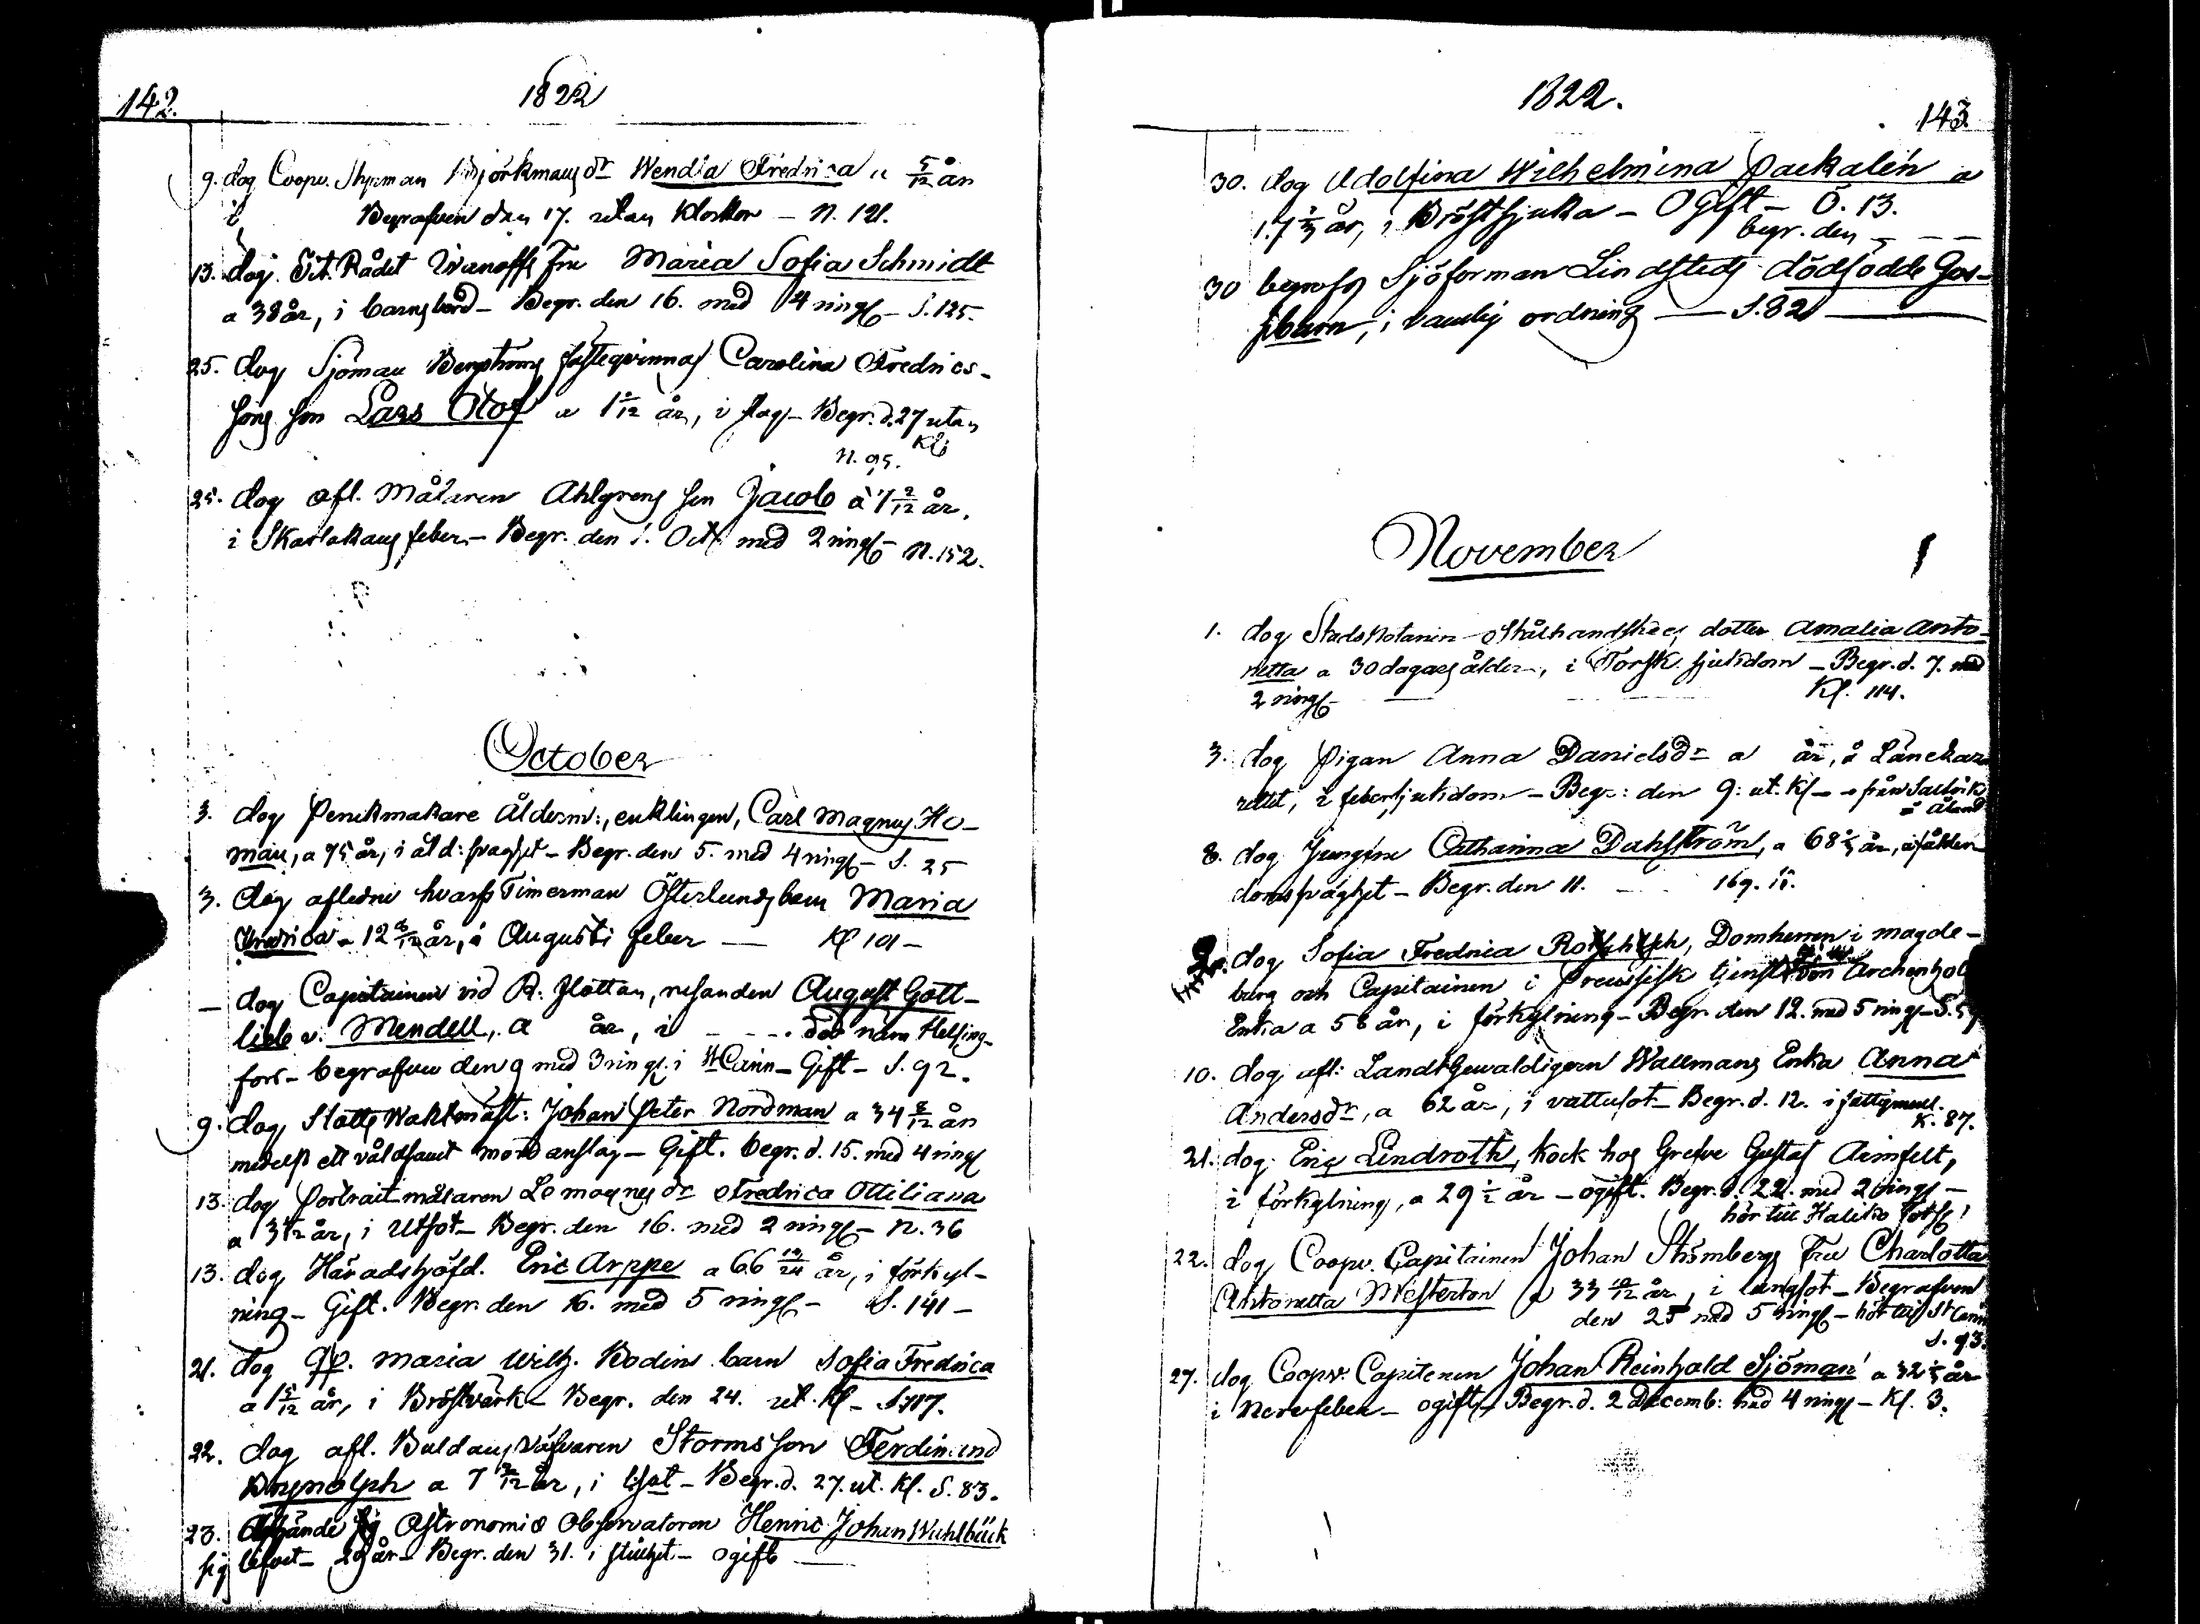 142.
1822
9. dog Coopv. Styrman Björkmans dr Wendla Fredrica a 5/12 år
i Begrafven den 17. utan Klockor – N. 121.
13. dog Tit. Rådet Ivanoffs Fru Maria Sofia Schmidt
a 38 år, i barnsbörd – Begr. den 16. med 4 ringr – S. 125.
25. dog Sjöman Bergströms fästeqvinnas Carolina Fredrics-
sons son Lars Olof a 1 /12 år, i slag – Begr. d. 27 utan
Kl.
N. 95.
25. dog afl. Målaren Ahlgrens son Jacob a 7 2/12 år,
i Skarlakans feber – Begr. den 1. Oct. med 2 ringr – N. 152.
October
3. dog Perukmakare Ålderm:, enklingen, Carl Magnus Ho-
man, a 75 år, i åld: svaghet – Begr. den 5. med 4 ringr – S. 25
3. dog afledne hvarfs Timerman Österlunds barn Maria
Fredrica – 12 /12 år, i Augusti feber — Kl 101 –
– dog Capitainen vid R. Flottan, resanden August Gott-
lieb v. Mendell, a år, i - - - . död nära Helsing-
fors – begrafven den 9 med 3 ringr. i St Carin – Gift – S. 92.
9. dog Slotts Waktmäst: Johan Peter Nordman a 34 /12 år
medelst ett våldsamt mordanslag – Gift. begr. d. 15. med 4 ringr
13. dog Portraitmålaren Lemagnes dr Fredrica Ottiliana
a 3 /12 år, i Utsot – Begr. den 16. med 2 ringr – N. 36
13. dog Häradshöfd. Eric Arppe a 66 /24 år, i förkyl-
ning – Gift. Begr. den 16. med 5 ringr – S. 141 –
21. dog qp. Maria Wilh. Bodins barn Sofia Fredrica
a 1 5/12 år, i Bröstvärk – Begr. den 24. ut. Kl – S 117.
22. dog afl. Buldansväfvaren Storms son Ferdinand
Rynolph a 7 /12 år, i – Begr. d. 27. ut. Kl. S. 83.
23. Afhände Astronomiæ Observatoren Henric Johan Wahlbeck
sig lifvet – 29 år – Begr. den 31. i stillhet – ogift —
1822.
143
30. dog Adolfina Wilhelmina Packalén a
17 år, i Bröstsjuka – Ogift – Ö. 13.
begr. den – – –
30 begrofs Sjöforman Lindsteds dödfödde Gos-
sbarn, i vanlig ordning — S. 82 —
November
1. dog StadsNotarien Stålhandskes dotter Amalia Anto-
netta a 30 dagars ålder, i Torsk sjukdom – Begr. d. 7. med
2 ringr – Kl. 114.
3. dog Pigan Anna Danielsdr a år, å Länelaza-
rettet, i febersjukdom – Begr: den 9: ut. Kl – från Saltvik
å Åland
8. dog Jungfru Catharina Dahlström, a 68 år, i ålder-
domssvaghet – Begr. den 11. – 169.
9. dog Sofia Fredrica , Domherren i Magde-
burg och Capitainen i Preussisk tjenst Von Archenholz
Enka a 58 år, i förkylning – Begr. den 12. med 5 ringr – S. 59
10. dog afl: Landt Gewaldigern Wallmans Enka Anna
Andersdr, a 62 år, i vattusot – Begr. d. 12. i fattigmull.
K. 87.
21. dog Eric Lindroth, Kock hos Grefve Gustaf Armfelt,
i förkylning, a 29 1/2 år – ogift. Begr. d. 22. med 2 ringr –
hör till Halikko förs:
22. dog Coopv. Capitainen Johan Strömbergs Fru Charlotta
Antonetta Westerton a 33 /12 år, i lungsot – Begrafven
den 25 med 5 ringr – hör till St Carin
S. 93.
27. dog Coopv. Capitenen Johan Reinhold Sjöman a 32 år
i Nervfeber – ogift – Begr. d. 2 Decemb: med 4 ringr – Kl. 3.